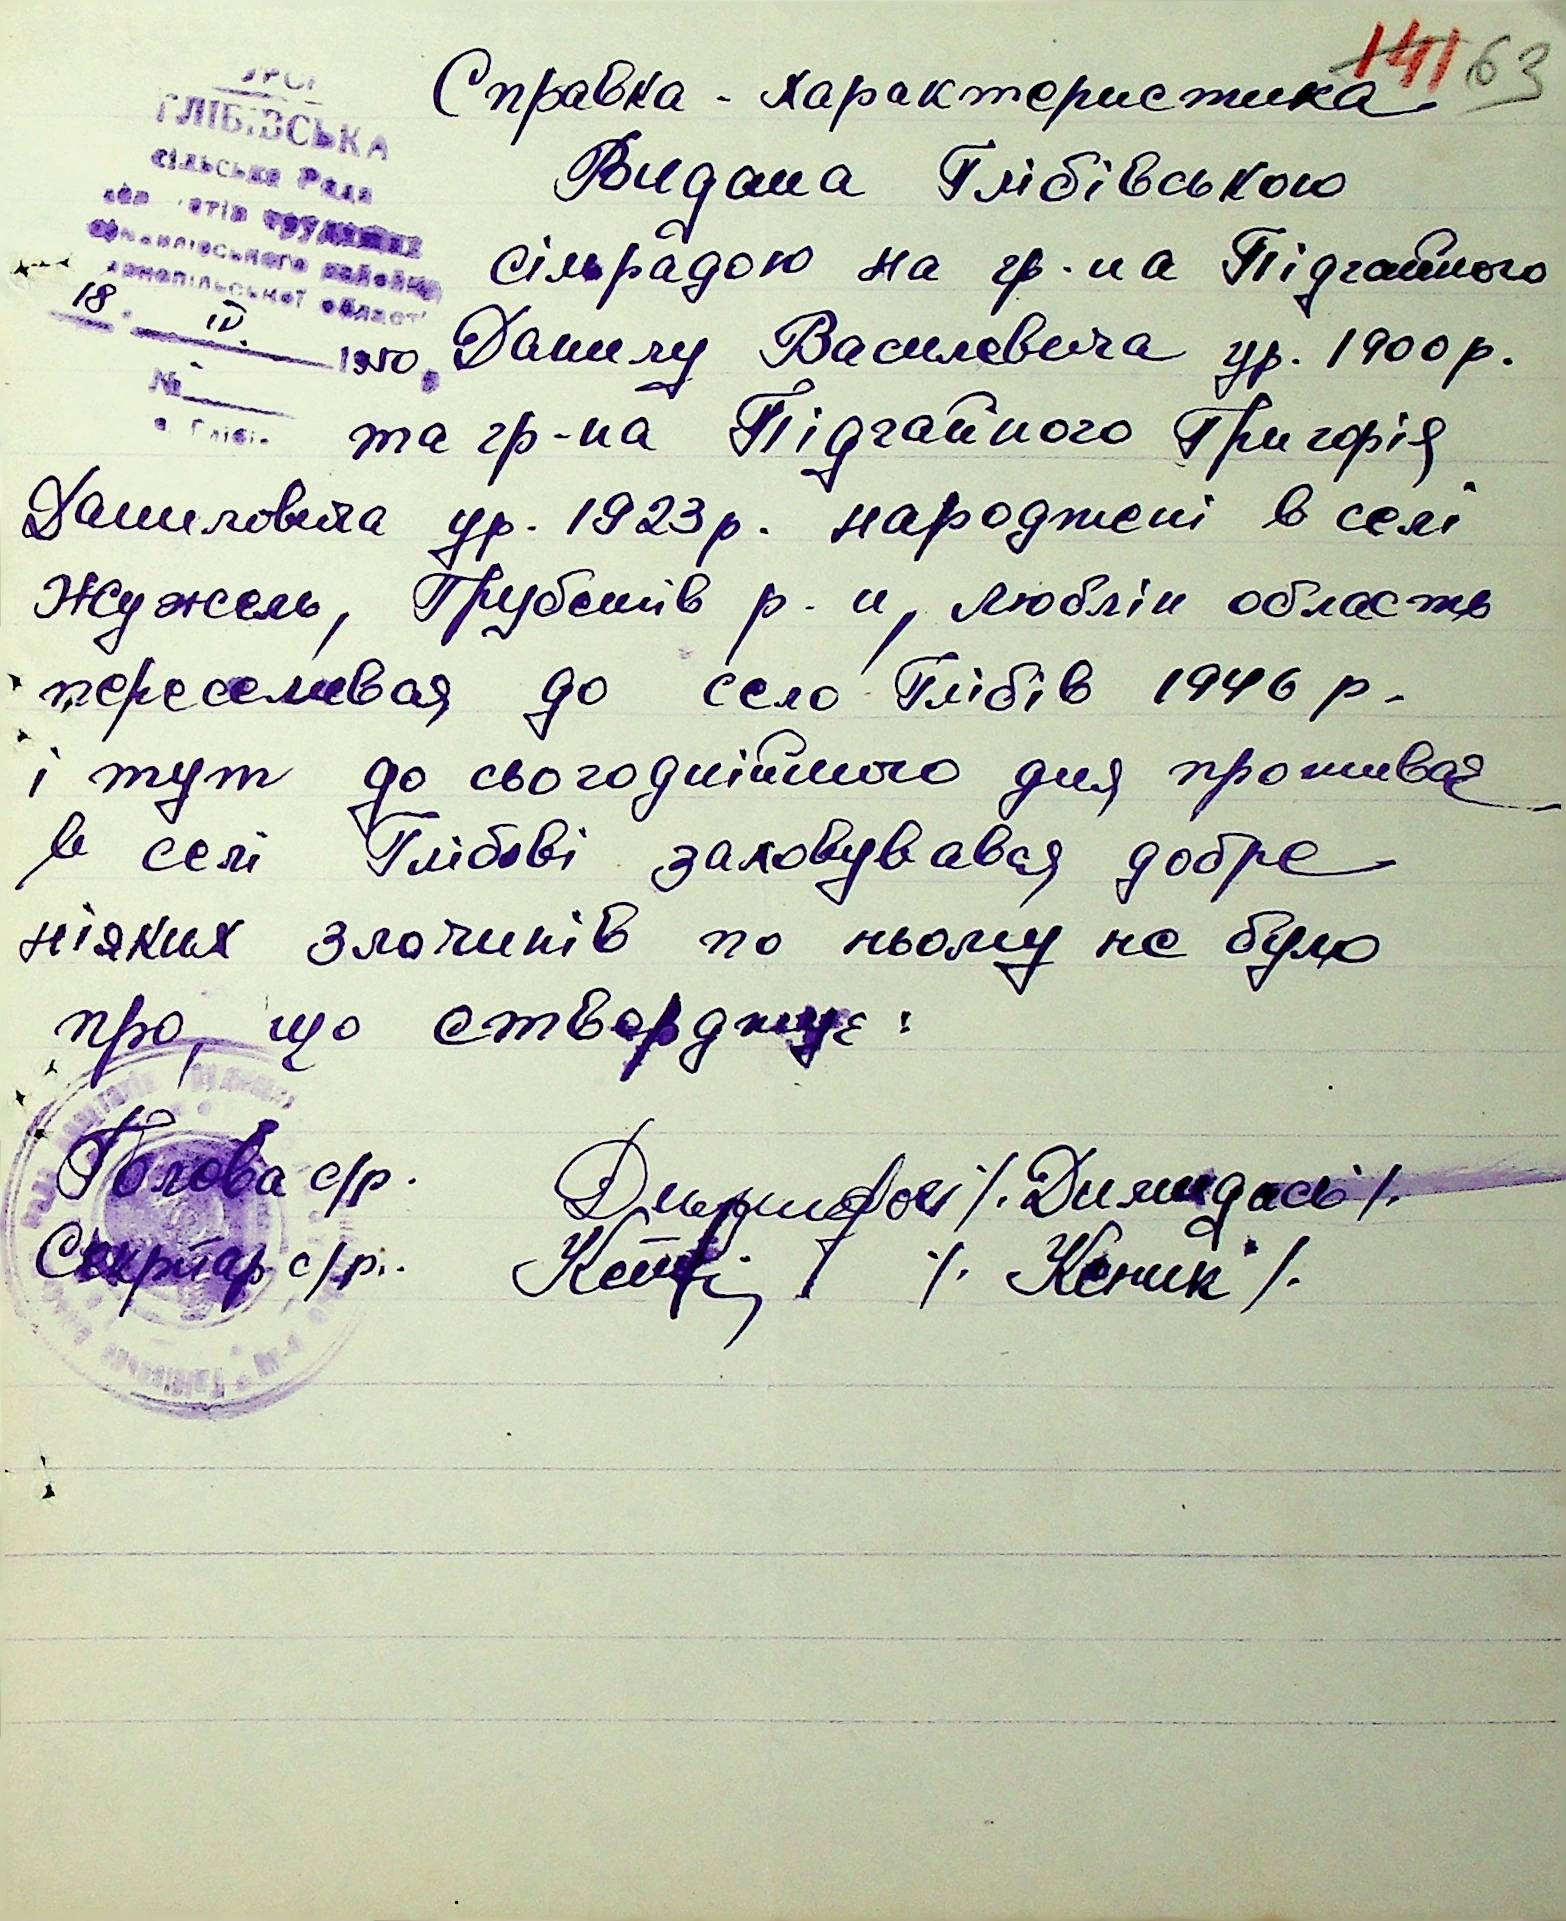 141 63
Справка - характеристика
УРСР
ГЛІБІВСЬКА
сільська Рада
трудящих
району
області
18 IV. 1950
№
с. Глібів
Видана Глібівською
сільрадою на гр-на Підгайного
Данилу Василевича ур. 1900 р.
та гр-на Підгайного Григорія
Даниловича ур. 1923 р. народжені в селі
Жужель, Грубешів р-н, Люблін область
переселився до село Глібів 1946 р.
і тут до сьогоднійшного дня проживає
в селі Глібові заховувався добре
ніяких злочинів по ньому не було
про, що стверджує:
Голова с/р. /. Димидась /.
Секртар с/р. /. Кеник /.